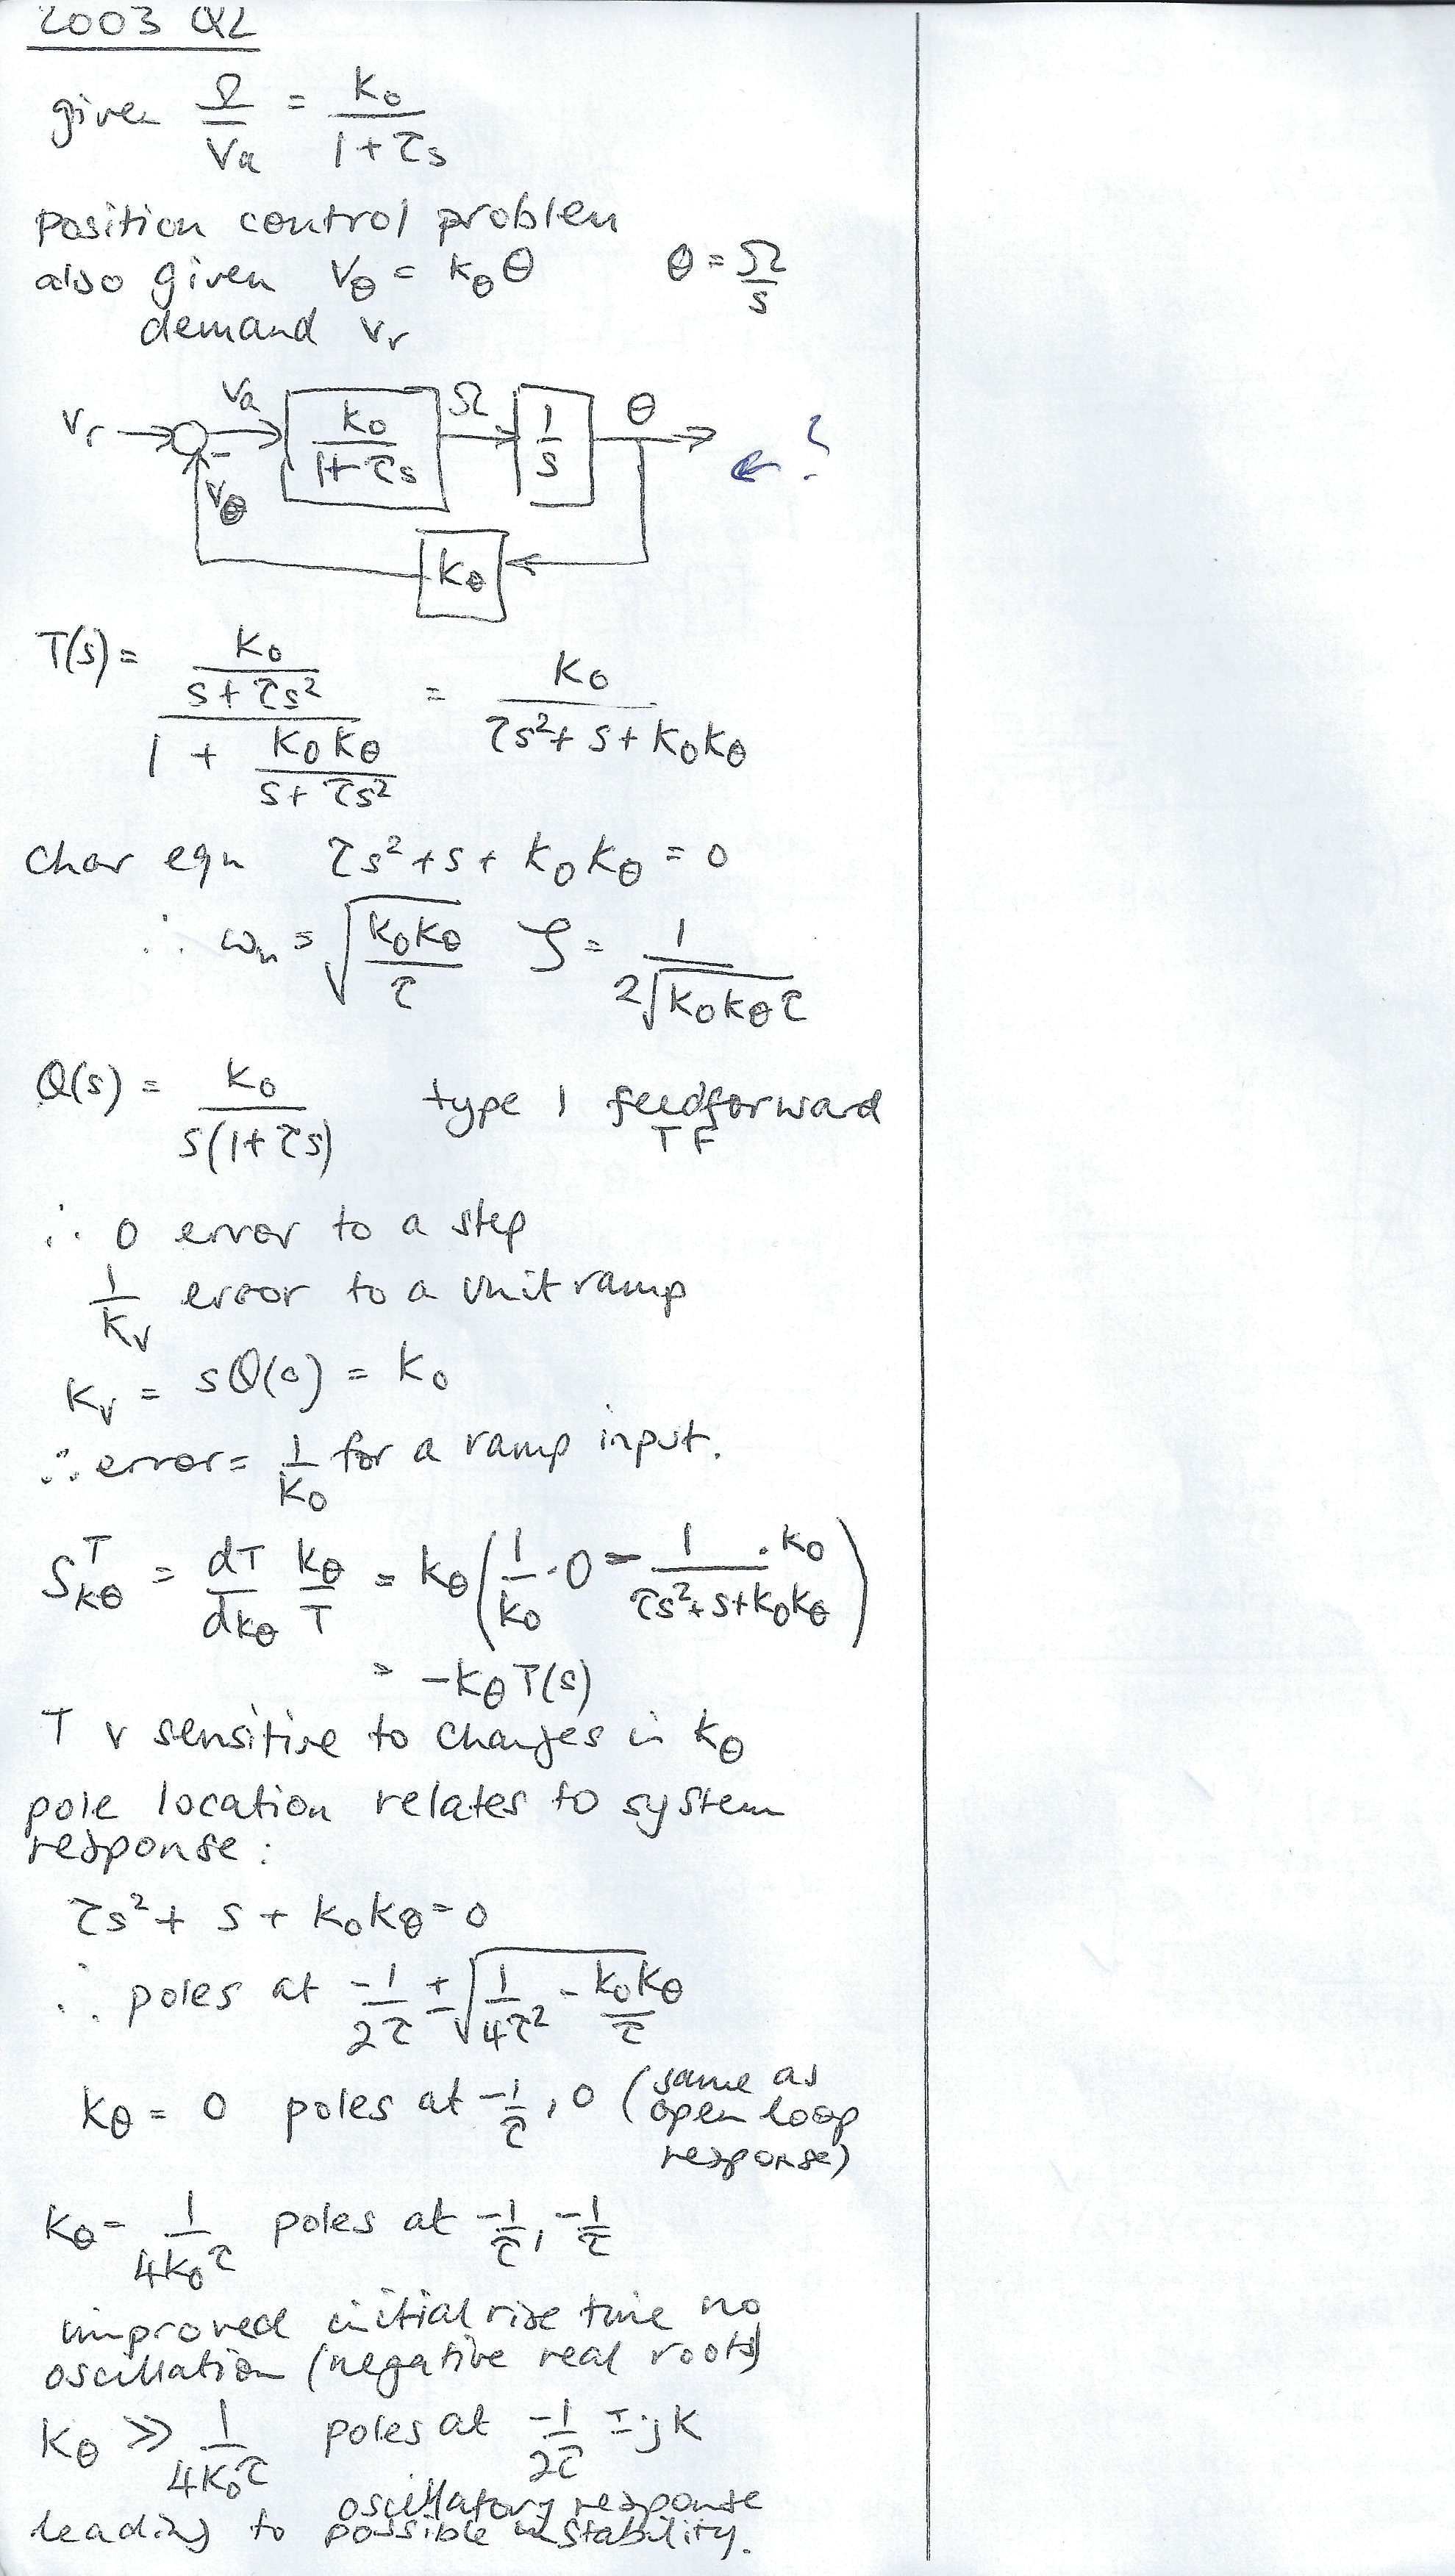 2003 Q2
given Ω/Va = K₀/(1+τs)
position control problem
also given Vθ = kθθ θ = Ω/s
demand Vr
Vr Va K₀/(1+τs) Ω 1/s θ ← ?
- Vθ
kθ
T(s) = (K₀/(s+τs²))/(1 + K₀Kθ/(s+τs²)) = K₀/(τs²+s+K₀Kθ)
char eqn τs²+s+K₀Kθ = 0
∴ ωn = √(K₀Kθ/τ) ζ = 1/(2√(K₀KθT))
Q(s) = K₀/(s(1+τs)) type 1 feedforward
TF
∴ 0 error to a step
1/Kv error to a unit ramp
Kv = sQ(0) = K₀
∴ error = 1/K₀ for a ramp input.
S^T_Kθ = dT/dKθ Kθ/T = Kθ(1/K₀·0 - 1/(τs²+s+K₀Kθ)·K₀)
= -KθT(s)
T v sensitive to changes in Kθ
pole location relates to system
response:
τs² + s + K₀Kθ = 0
∴ poles at -1/2τ ± √(1/4τ² - K₀Kθ/τ)
Kθ = 0 poles at -1/τ, 0 (same as
open loop
response)
Kθ = 1/4K₀τ poles at -1/τ, -1/τ
improved initial rise time no
oscillation (negative real roots)
Kθ ≫ 1/4K₀τ poles at -1/2τ ± jK
oscillatory response
leading to possible instability.